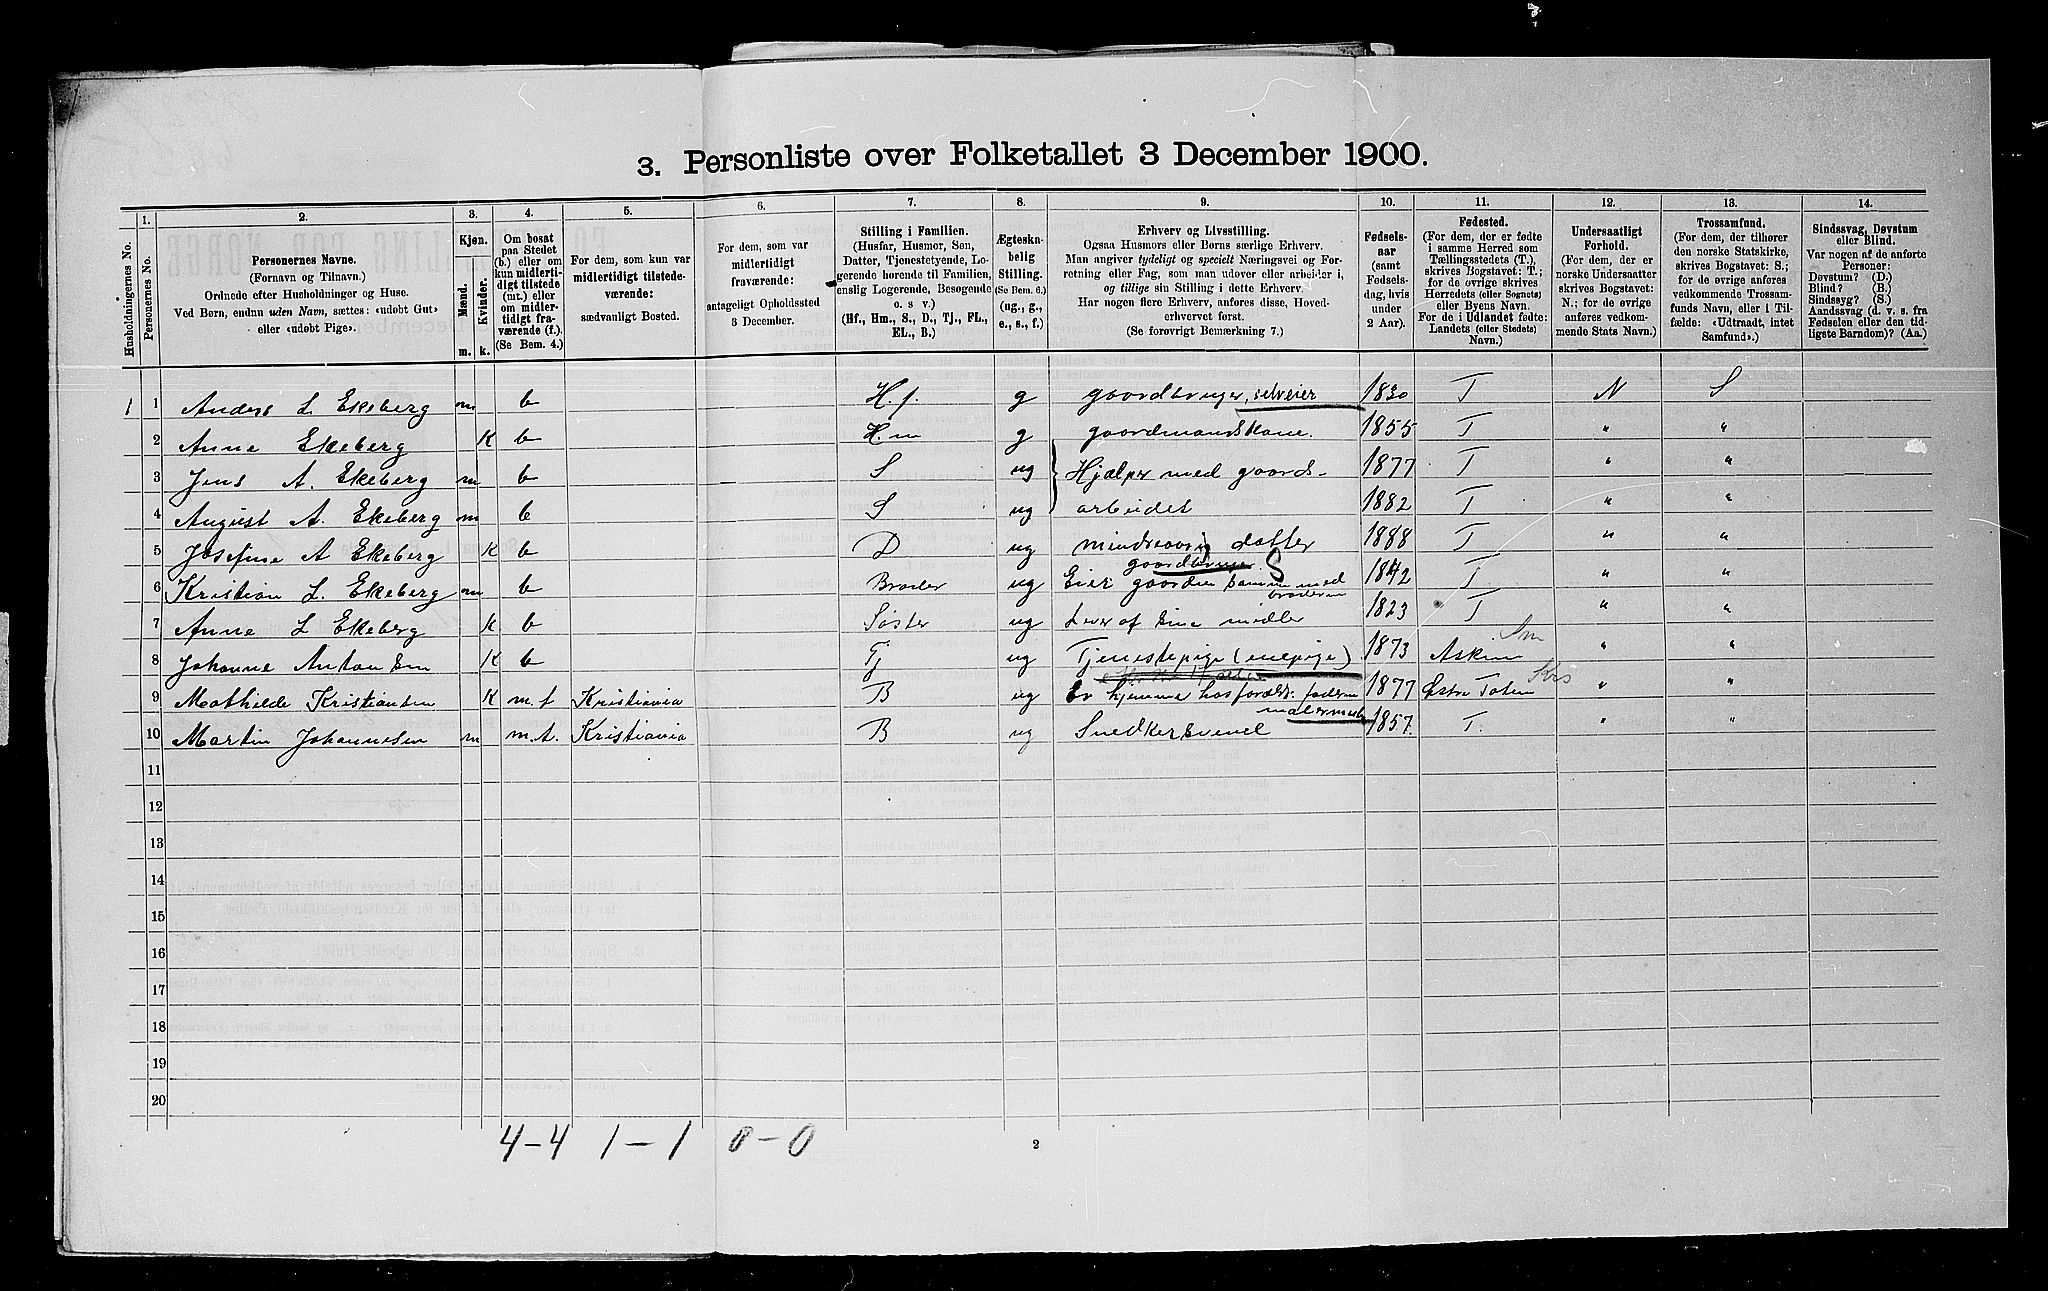 3. Personliste over Folketallet 3 December 1900.
Husholdningernes No.
1.
Personernes No.
2.
Personernes Navne.
(Fornavn og Tilnavn.)
Ordnede efter Husholdninger og Huse.
Ved Børn, endnu uden Navn, sættes: «udøbt Gut»
eller «udøbt Pige».
3.
Kjøn.
Mænd.
Kvinder.
m.
k.
4.
Om bosat
paa Stedet
(b.) eller om
kun midlerti-
digt tilstede
(mt.) eller
om midler-
tidigt fra-
værende (f.).
(Se Bem. 4.)
5.
For dem, som kun var
midlertidigt tilstede-
værende:
sædvanligt Bosted.
6.
For dem, som var
midlertidigt
fraværende:
antageligt Opholdssted
3 December.
7.
Stilling i Familien.
(Husfar, Husmor, Søn,
Datter, Tjenestetyende, Lo-
gerende hørende til Familien,
enslig Logerende, Besøgende
o. s v.)
(Hf., Hm., S., D., Tj., FL.,
EL., B.)
8.
Ægteska-
belig
Stilling.
(Se Bem. 6.)
(ug., g.,
e., s., f.)
9.
Erhverv og Livsstilling.
Ogsaa Husmors eller Børns særlige Erhverv.
Man angiver tydeligt og specielt Næringsvei og For-
retning eller Fag, som man udøver eller arbeider i,
og tillige sin Stilling i dette Erhverv.
Har nogen flere Erhverv, anføres disse, Hoved-
erhvervet først.
(Se forøvrigt Bemærkning 7.)
10.
Fødsels-
aar
(samt
Fødsels-
dag, hvis
under
2 Aar).
11.
Fødested.
(For dem, der er fødte
i samme Herred som
Tællingsstedets (T.),
skrives Bogstavet: T.;
for de øvrige skrives
Herredets (eller Sognets)
eller Byens Navn.
For de i Udlandet fødte:
Landets (eller Stedets)
Navn.)
12.
Undersaatligt
Forhold.
(For dem, der er
norske Undersaatter
skrives Bogstavet:
N.; for de øvrige
anføres vedkom-
mende Stats Navn.)
13.
Trossamfund.
(For dem, der tilhører
den norske Statskirke,
skrives Bogstavet: S.;
for de øvrige anføres
vedkommende Trossam-
funds Navn, eller i Til-
fælde: «Udtraadt, intet
Samfund».)
14.
Sindssvag, Døvstum
eller Blind.
Var nogen af de anførte
Personer:
Døvstum? (D.)
Blind? (B.)
Sindssyg? (S.)
Aandssvag (d. v. s. fra
Fødselen eller den tid-
ligste Barndom)? (Aa.)
1 1 Anders L. Ekeberg m b H.f. g gaardbruger, selveier 1830 T N S
2 Anna Ekeberg K b H.m g gaardmandskone. 1855 T " "
3 Jens A. Ekeberg m b S ug Hjælper med gaards- 1877 T " "
4 August A. Ekeberg m b S ug arbeidet 1882 T " "
5 Josefine A Ekeberg K b D ug mindreaarig datter 1888 T " "
gaardbruger S
6 Kristian L. Ekeberg m b Broder ug Eier gaarden sammen med 1842 T. " "
broderen
7 Anne L Ekeberg K b Søster ug Lever af sine midler 1823 T " "
8 Johanne Antonsen K b Tj ug Tjenestepige (enepige) 1873 Askim Sm " "
9 Mathilde Kristiansen K m.t Kristiania B ug Er hjemme hos foræld. faderen 1877 Østre Toten Krs " "
malermester
10 Martin Johannesen m m.t. Kristiania B ug Snedkersvend 1857. T. " "
11
12
13
14
15
16
17
18
19
20
4-4 1-1 0-0
2